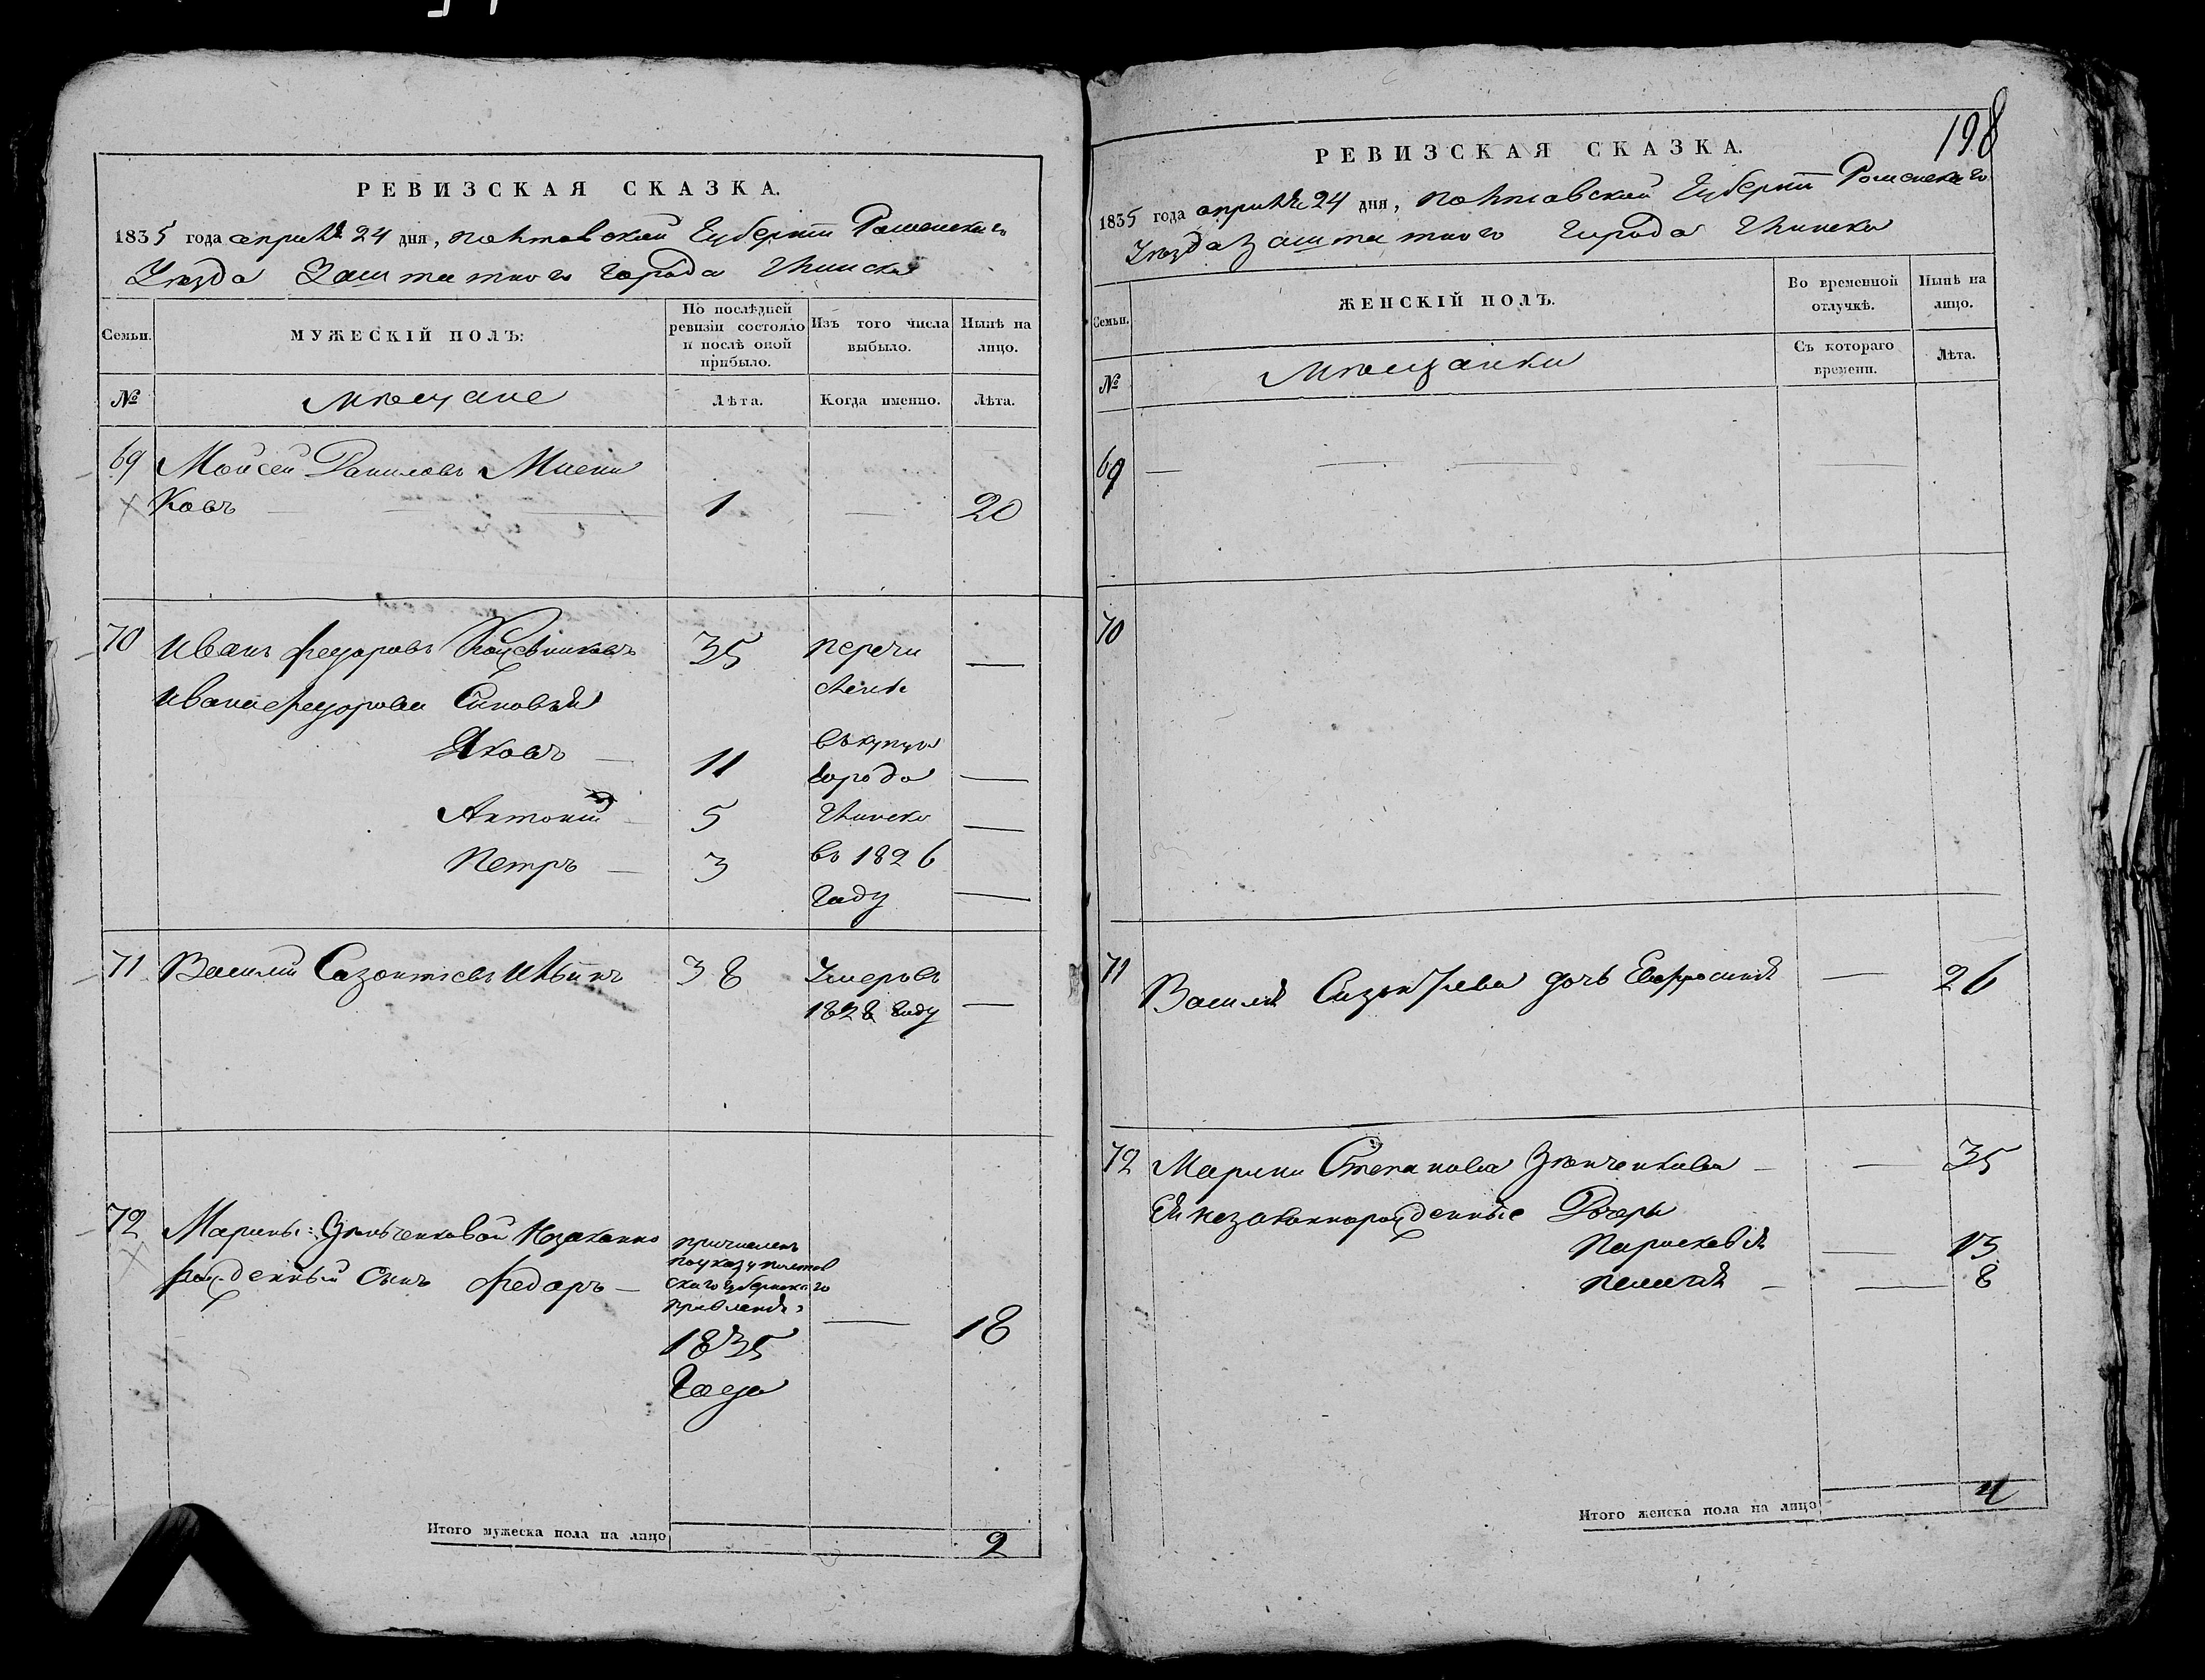 РЕВИЗСКАЯ СКАЗКА.
1835 года апреля 24 дня, полтавской Губернии Роменскаго
Уезда Заштатного города Глинска
Семьи.
МУЖЕСКІЙ ПОЛЪ:
По послѣдней ревизіи состояло и послѣ оной прибыло.
Изъ того числа выбыло.
Нынѣ на лицо.
№
мещане
Лѣта.
Когда именно.
Лѣта.
69 Мойсей Даниловъ
ковъ 1 20
70 Иванъ Федоровъ 35 перечи
слены
Ивана Федорова Сыновья
Яковъ 11 въ купцы
города
Антоний 5 Глинска
Петръ 3 въ 1826
году
71 Василий Сазонтиевъ Ильинъ 38 Умеръ въ
1828 году
72 Марины Незаконно
рожденный Сынъ Федоръ
причисленъ
по указу полтав
скаго губернскаго
правления
1835
года
18
Итого мужеска пола на лицо 2
198
РЕВИЗСКАЯ СКАЗКА.
1835 года апреля 24 дня, полтавской Губернии Роменскаго
Уезда Заштатного города Глинска
Семьи.
ЖЕНСКІЙ ПОЛЪ.
Во временной отлучкѣ.
Нынѣ на лицо.
№
Мещанки
Съ котораго времени.
Лѣта.
69
70
71 Василия Сазонтиева дочь Евфросиния 26
72 Марина Степанова 35
Ея незаконнорожденные Дочери
Парасковия 13
Пелагия 8
Итого женска пола на лицо 4